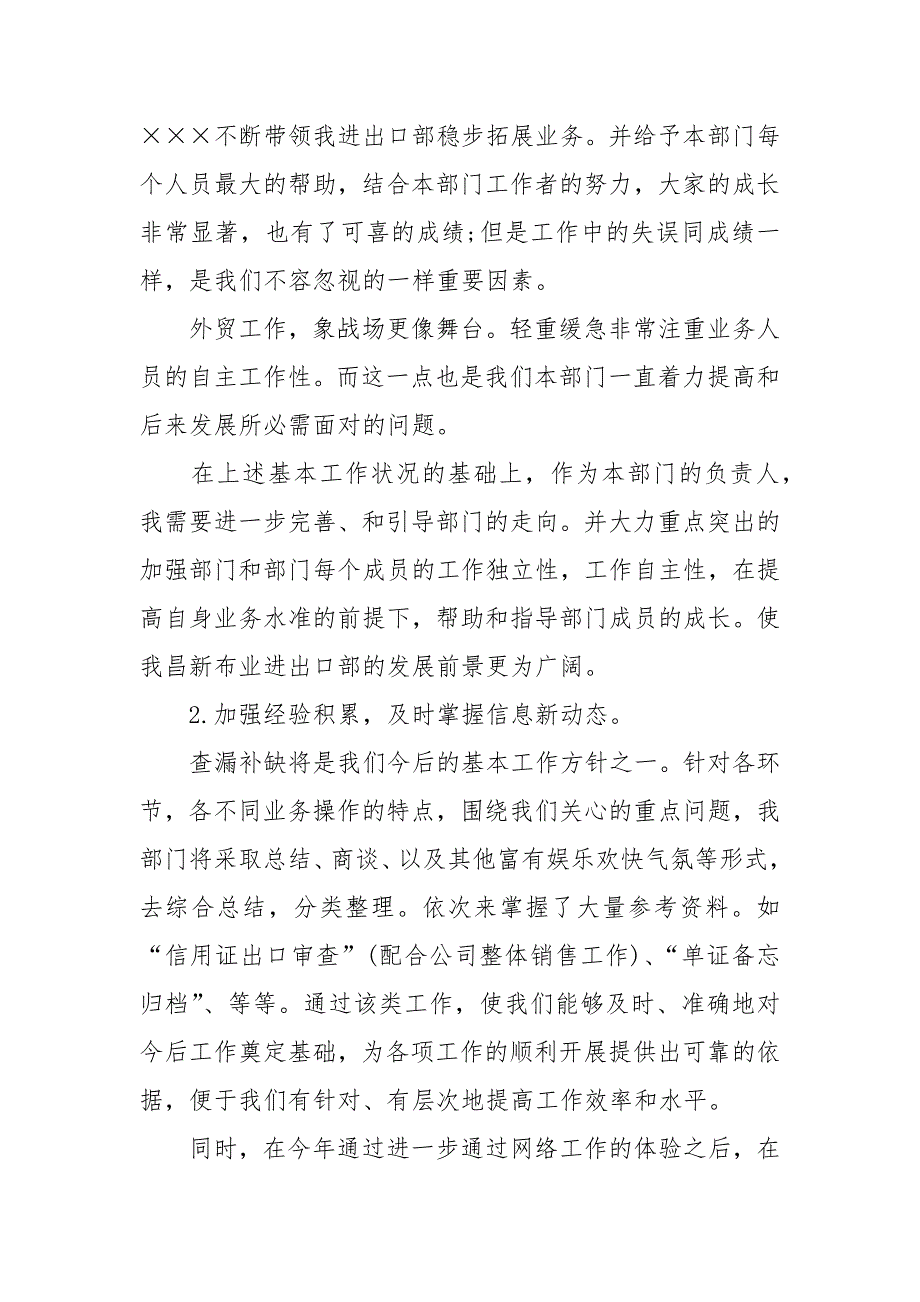 ×××不断带领我进出口部稳步拓展业务。并给予本部门每
个人员最大的帮助，结合本部门工作者的努力，大家的成长
非常显著，也有了可喜的成绩;但是工作中的失误同成绩一
样，是我们不容忽视的一样重要因素。
外贸工作，象战场更像舞台。轻重缓急非常注重业务人
员的自主工作性。而这一点也是我们本部门一直着力提高和
后来发展所必需面对的问题。
在上述基本工作状况的基础上，作为本部门的负责人，
我需要进一步完善、和引导部门的走向。并大力重点突出的
加强部门和部门每个成员的工作独立性，工作自主性，在提
高自身业务水准的前提下，帮助和指导部门成员的成长。使
我昌新布业进出口部的发展前景更为广阔。
2.加强经验积累，及时掌握信息新动态。
查漏补缺将是我们今后的基本工作方针之一。针对各环
节，各不同业务操作的特点，围绕我们关心的重点问题，我
部门将采取总结、商谈、以及其他富有娱乐欢快气氛等形式，
去综合总结，分类整理。依次来掌握了大量参考资料。如
“信用证出口审查”(配合公司整体销售工作)、“单证备忘
归档”、等等。通过该类工作，使我们能够及时、准确地对
今后工作奠定基础，为各项工作的顺利开展提供出可靠的依
据，便于我们有针对、有层次地提高工作效率和水平。
同时，在今年通过进一步通过网络工作的体验之后，在